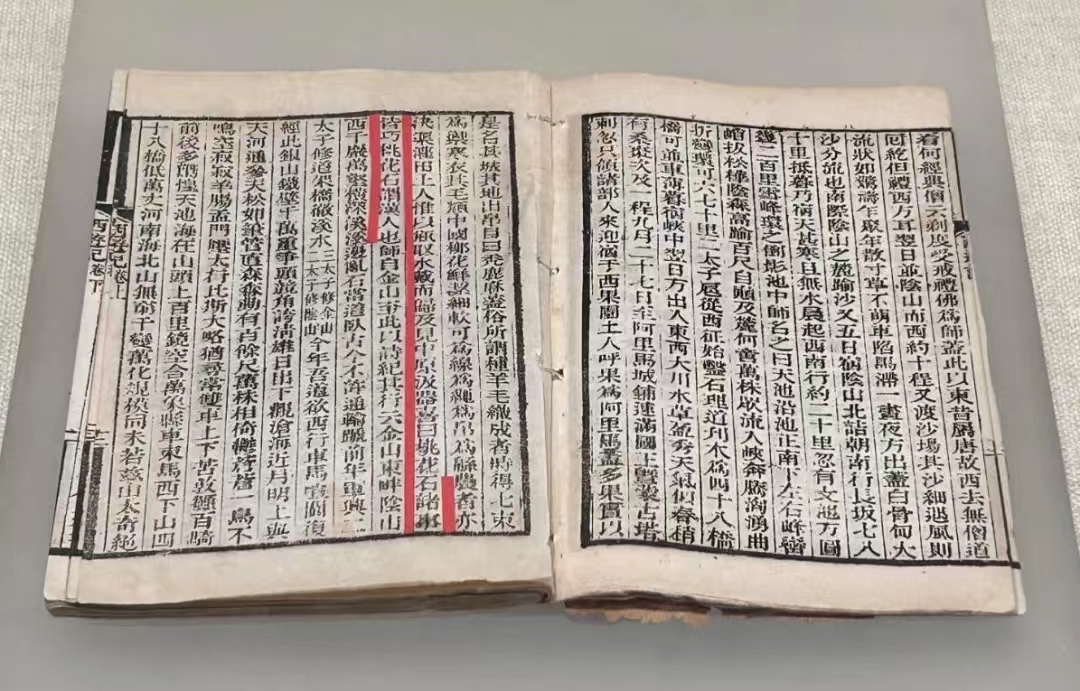 看何經典僧云剃度受戒禮佛為師蓋此以東昔屬唐故西去無僧道
回紇但禮西方耳翌日並陰山而西約十程又渡沙場其沙細遇風則
流狀如驚濤乍聚乍散寸草不萌車陷馬滯一晝夜方出蓋白骨甸大
沙分流也南際陰山之麓踰沙又五日宿陰山北詰朝南行長坂七八
十里抵暮乃宿天甚寒且無水晨起西南行約二十里忽有大池方圓
幾二百里雪峰環之倒影池中師名之曰天池沿池正南下左右峰巒
峭拔松樺陰森高踰百尺自巔及麓何啻萬株眾流入峽奔騰洶湧曲
折灣環可六七十里二太子扈從西征始鑿石理道刋木為四十八橋
橋可並車薄暮宿峽中翌日方出入東西大川水草盈秀天氣似春稍
有桑棗次及一程九月二十七日至阿里馬城鋪速滿國王暨蒙古塔
剌忽只領諸部人來迎宿于西果園土人呼果為阿里馬蓋多果實以
是名其城其地出帛目曰禿鹿麻蓋俗所謂種羊毛織成者時得七束
為禦寒衣其毛類中國柳花鮮潔細軟可為線為繩為帛為綿農者亦
決渠灌田土人惟以瓶取水戴而歸及見中原汲器喜曰桃花石諸事
皆巧桃花石謂漢人也師自金山至此以詩紀其行云金山東畔陰山
西千巖萬壑攢深溪溪邊亂石當道臥古今不許通輪蹄前年軍興二
太子修道架橋徹溪水三太子修金山二太子修陰山今年吾道欲西行車馬喧闐復
經此銀山鐵壁千萬重爭頭競角誇清雄日出下觀滄海近月明上與
天河通參天松如筆管直森森動有百餘尺萬株相倚鬱蒼蒼一鳥不
鳴空寂寂羊腸孟門壓太行比斯大略猶尋常雙車上下苦敦顛百騎
前後多驚惶天池海在山頭上百里鏡空含萬象縣車束馬西下山四
十八橋低萬丈河南海北山無窮千變萬化規模同未若茲山太奇絕
西遊記卷上
西遊記卷下